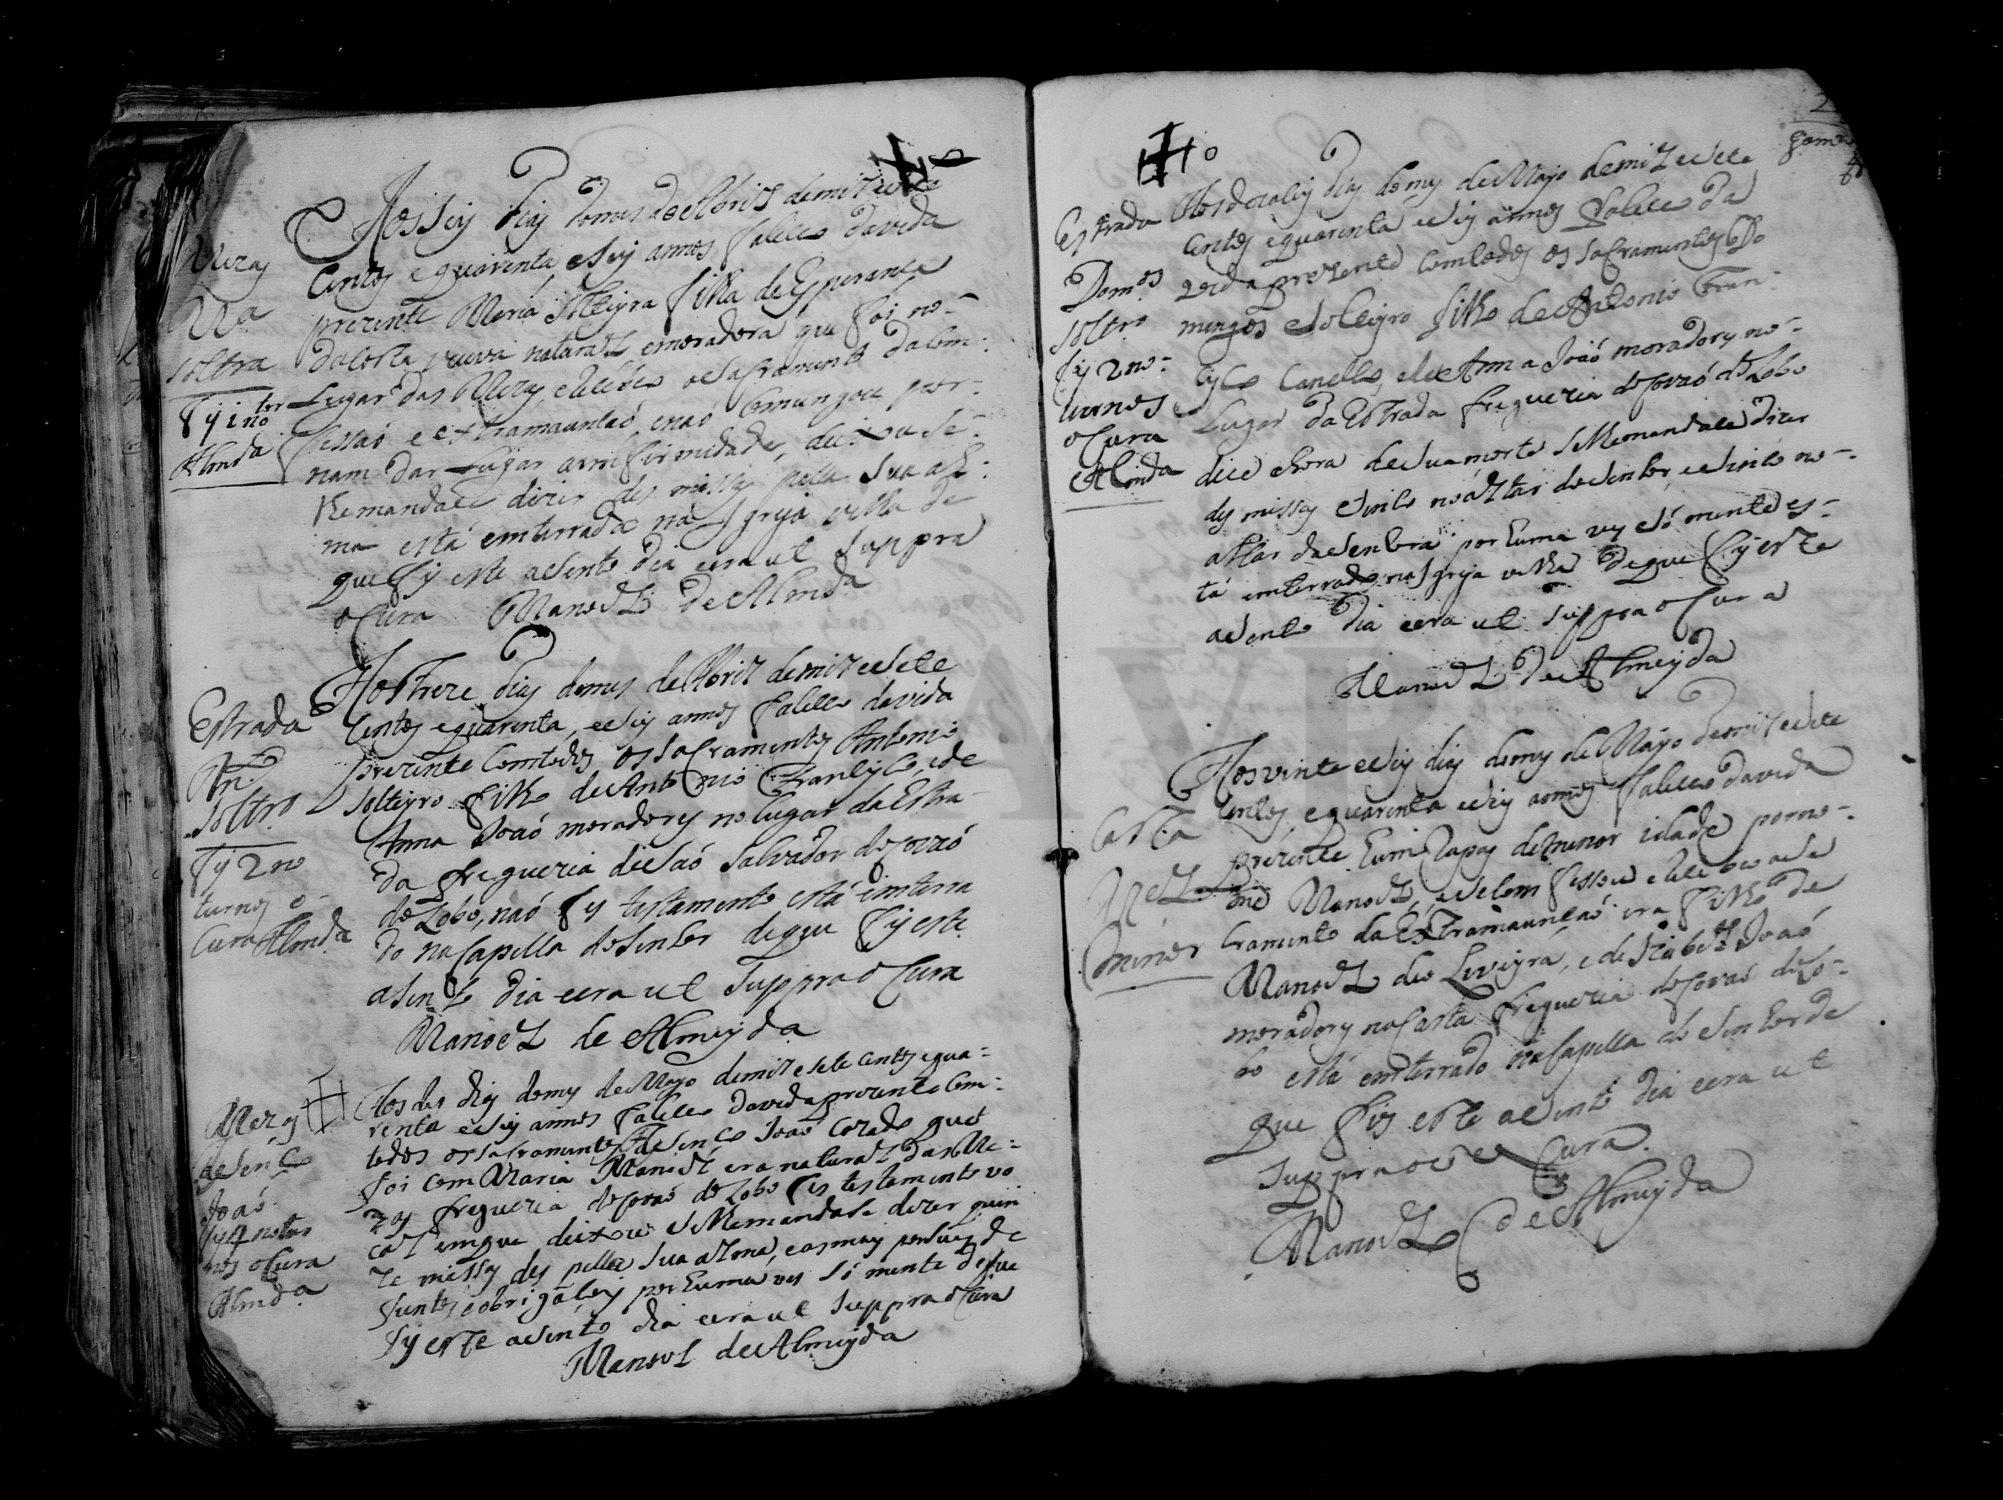 Aos seis dias do mes de Abril de mil e sete
centos e quarenta e seis annos faleceo da vida
prezente Maria solteyra filha de Esperança
da costa veuva natural e moradora que foi no
Lugar das Meras e Recebeo o sacramento da com
fessaó e extramaunsaó, enaó comungou por
nam dar Lugar a emfirmidade, deixou se
lhe mandace dizer des missas pella sua al
ma está emterrada na Igreja velha de
que fis este asento dia eera ut suppra
o Cura Manoel de Almda
Meras
Ma
soltra
fis 1 no
Almda
Aos treze dias do mes de Abril de mil e sete
centos e quarenta, e seis annos faleceo da vida
prezente com todos os sacramentos Antonio
solteyro filho de Antonio Francisco, e de
Anna Joaó moradores no lugar da Estra
da freguezia de Saó Salvador do Covaó
do Lobo, naó fes testamento está emterra
do na capella do Senhor de que fis este
asento dia eera ut suppra o Cura
Manoel de Almeyda
Estrada
An.
soltro
fis 2 no
turnos o
Cura Almda
Aos des dias do mes de Mayo de mil e sete centos e qua
renta e seis annos faleceo da vida prezente com
todos os sacramentos de senço Joaó Corado que
foi com Maria Manoel era natural das Me
zas freguezia do Covaó do Lobo fes testamento vo
cal em que deixou se lhe mandase dizer quin
ze missas des pella sua alma, e as mais por suas de
funtos e obrigaçois por huma ves só mente de que
fis este asento dia eera ut suppra o Cura
Manoel de Almeyda
Meras
de senço
Joaó
fis 4 notur
nos o Cura
Almda
Aos dezaseis dias do mes de Mayo de mil e sete
centos e quarenta e seis annos faleceo da
vida prezente com todos os sacramentos Do
mingos solteyro filho de Antonio Fran
cisco Canello, e de Anna Joaó moradores no
Lugar da Estrada freguezia do Covaó do Lobo
dice a hora de sua morte se lhe mandace dizer
des missas sinco no altar do Senhor, e sinco no
altar da Senhora por huma ves só mente es
tá emterrado na Igreja velha de que fis este
asento dia eera ut suppra o Cura
Manoel de Almeyda
Estrada
Domos
soltro
fis 2 no
turnos
o Cura
Almda
Aos vinte e seis dias do mes de Mayo de mil e sete
centos e quarenta e seis annos faleceo da vida
prezente hum Rapas de menor idade por no
me Manoel, e se comfessou e Recebeo o sa
cramento da Extramaunsaó era filho de
Manoel de Oliveyra, e de Izabel Joaó
moradores na Casta freguezia do Covaó do Lo
bo está emterrado na Capella do Senhor de
que fis este asento dia eera ut
suppra o Cura
Manoel de Almeyda
Casta
Mel
menor